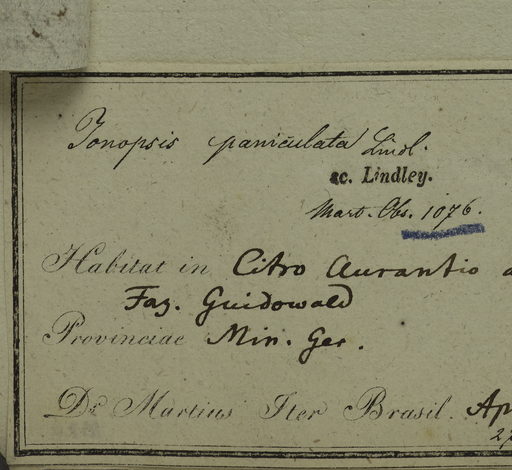 Ionopsis paniculata Lindl.
ac. Lindley.
Mart. Obs. 1076.
Habitat in Citro Aurantio a
Faz. Guidowald
Provinciae Min. Ger.
Dr. Martius Iter Brasil. Ap
27